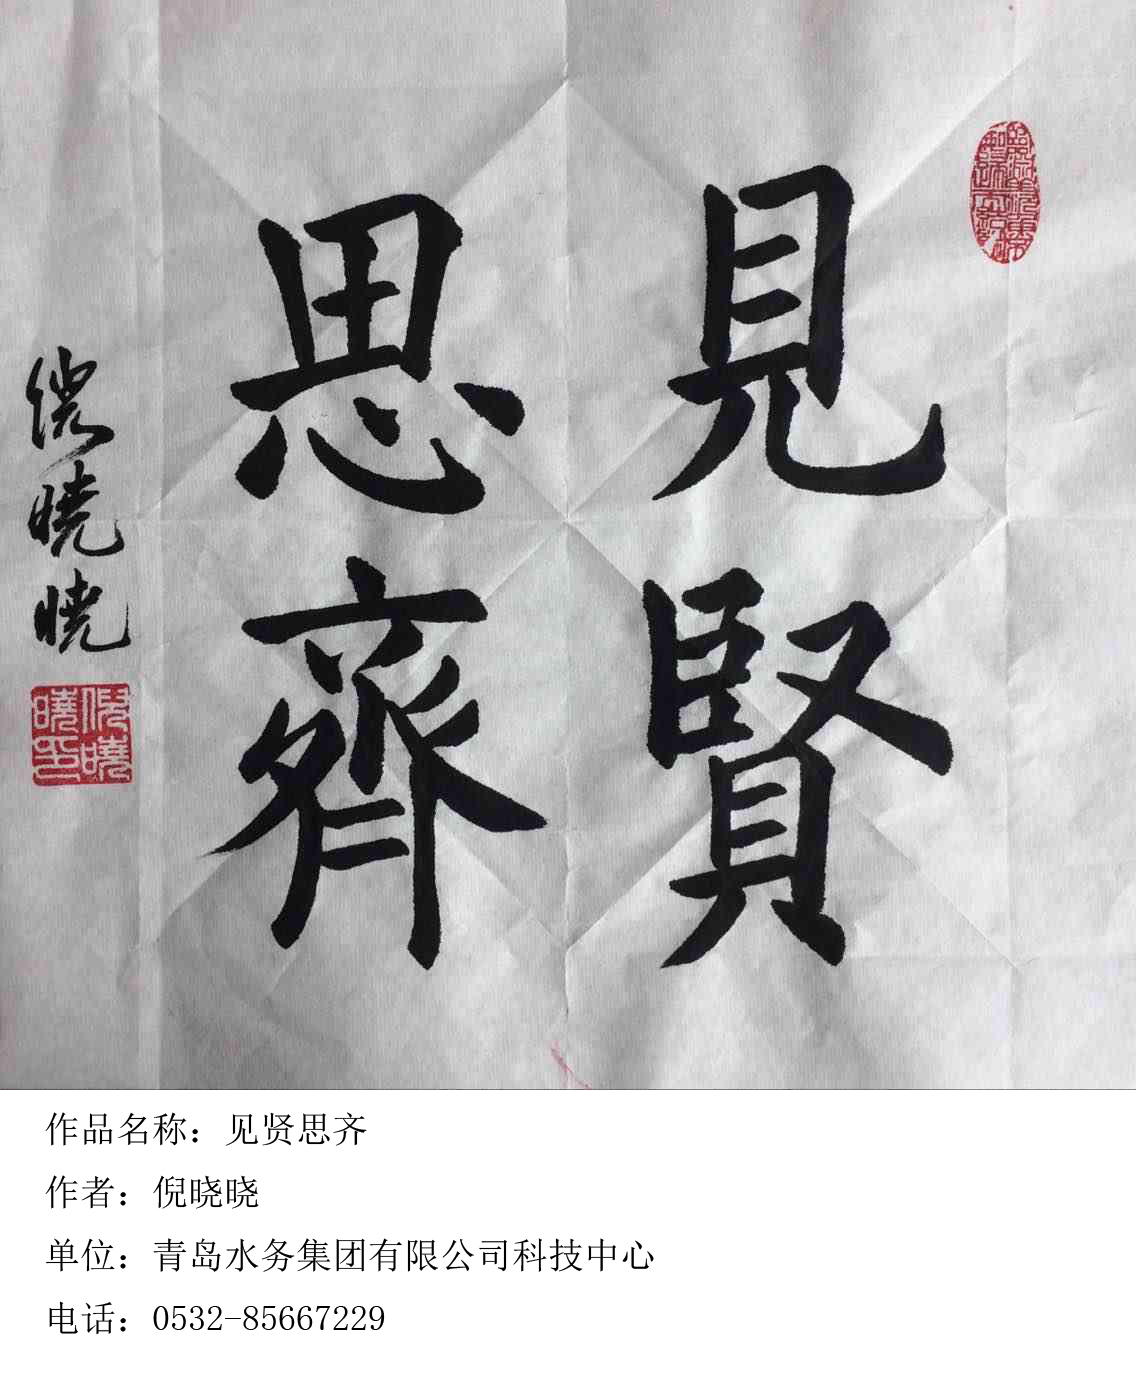 見賢
思齊
倪曉曉
倪曉
曉印
作品名称：见贤思齐
作者：倪晓晓
单位：青岛水务集团有限公司科技中心
电话：0532-85667229